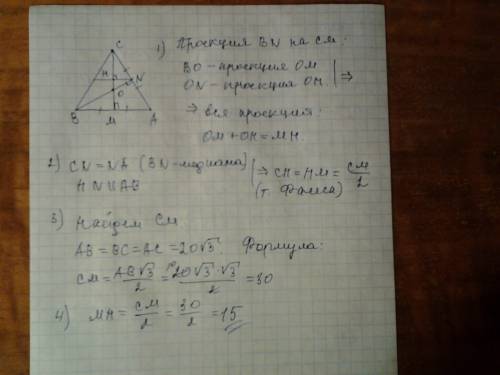 C
H
N
O
B
M
A
1) Проекция BN на CM:
BO - проекция OM
ON - проекция OH | ⇒
⇒ вся проекция:
OM + OH = MH.
2) CN = NA (BN - медиана)
HN ∥ AB | ⇒ CH = HM = CM/2
(т. Фалеса)
3) Найдем CM.
AB = BC = AC = 20√3. Формула:
CM = AB√3/2 = 20√3·√3/2 = 30
4) MH = CM/2 = 30/2 = 15